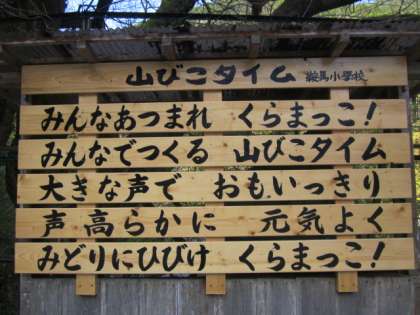 山びこタイム 鞍馬小学校
みんなあつまれ くらまっこ!
みんなでつくる 山びこタイム
大きな声で おもいっきり
声高らかに 元気よく
みどりにひびけ くらまっこ!